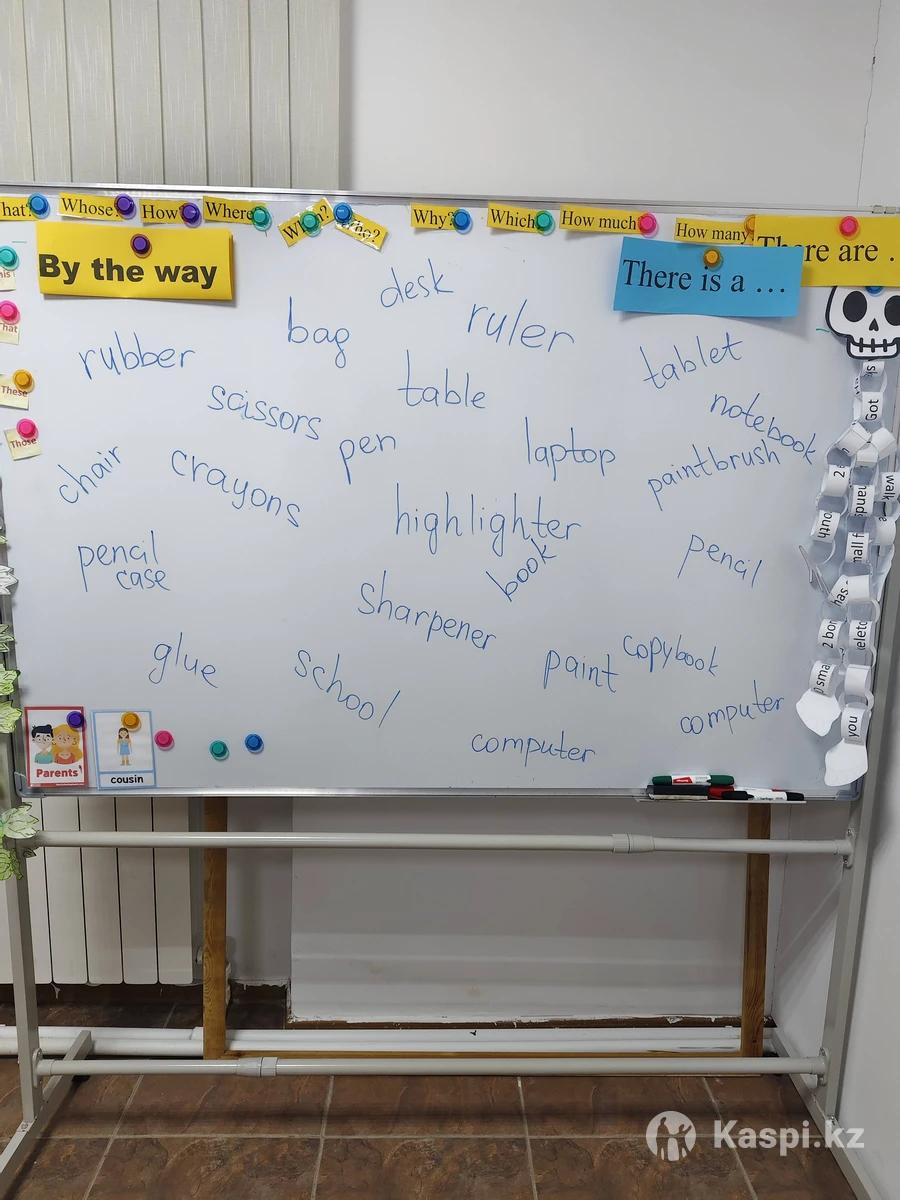 Whose?
How
Where
Why?
Which
How much
How many
There are ...
By the way
There is a ...
These
Those
desk
bag
ruler
rubber
tablet
table
scissors
notebook
pen
laptop
chair
crayons
paintbrush
highlighter
pencil
case
book
pencil
sharpener
glue
school
paint
copybook
computer
computer
Got
walk
2
you
Parents
cousin
Kaspi.kz